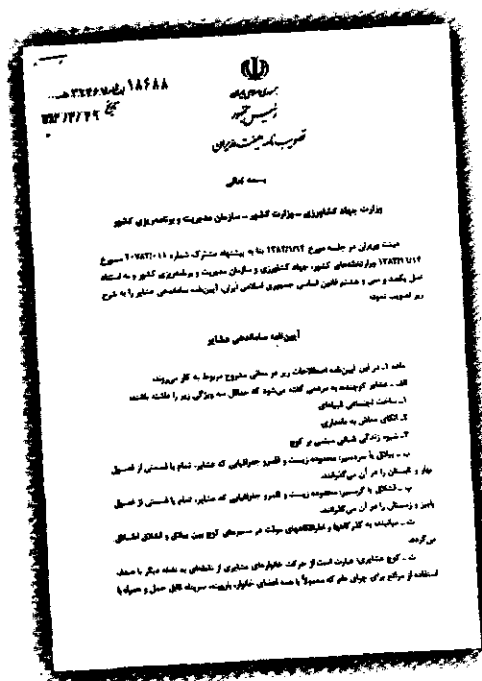 ۱۸۶۸۸
جمهوری اسلامی ایران
رئیس جمهور
تصویب نامه هیئت وزیران
بسمه تعالی
وزارت جهاد کشاورزی – وزارت کشور – سازمان مدیریت و برنامه‌ریزی کشور
هیئت وزیران در جلسه مورخ بنا به پیشنهاد مشترک شماره مورخ
وزارتخانه‌های کشور، جهاد کشاورزی و سازمان مدیریت و برنامه‌ریزی کشور و به استناد
اصل یکصد و سی و هشتم قانون اساسی جمهوری اسلامی ایران، آیین‌نامه ساماندهی عشایر را به شرح
زیر تصویب نمود:
آیین‌نامه ساماندهی عشایر
ماده ۱ـ در این آیین‌نامه اصطلاحات زیر در معانی مشروح مربوط به کار می‌روند:
الف ـ عشایر کوچنده: به مردمی گفته می‌شود که حداقل سه ویژگی زیر را داشته باشند:
۱ـ ساخت اجتماعی قبیله‌ای
۲ـ اتکای معاش به دامداری
۳ـ شیوه زندگی شبانی مبتنی بر کوچ
ب ـ ییلاق یا سردسیر: محدوده زیست و قلمرو جغرافیایی که عشایر، تمام یا قسمتی از فصول
بهار و تابستان را در آن می‌گذرانند.
پ ـ قشلاق یا گرمسیر: محدوده زیست و قلمرو جغرافیایی که عشایر، تمام یا قسمتی از فصول
پاییز و زمستان را در آن می‌گذرانند.
ت ـ میانبند: به گذرگاهها و اطراقگاههای موقت در مسیرهای کوچ بین ییلاق و قشلاق اطلاق
می‌گردد.
ث ـ کوچ عشایری: عبارت است از حرکت خانوارهای عشایری از نقطه‌ای به نقطه دیگر با هدف
استفاده از مراتع برای چرای دام که معمولاً با همه اعضای خانوار، باروبنه، سرپناه قابل حمل و همراه با